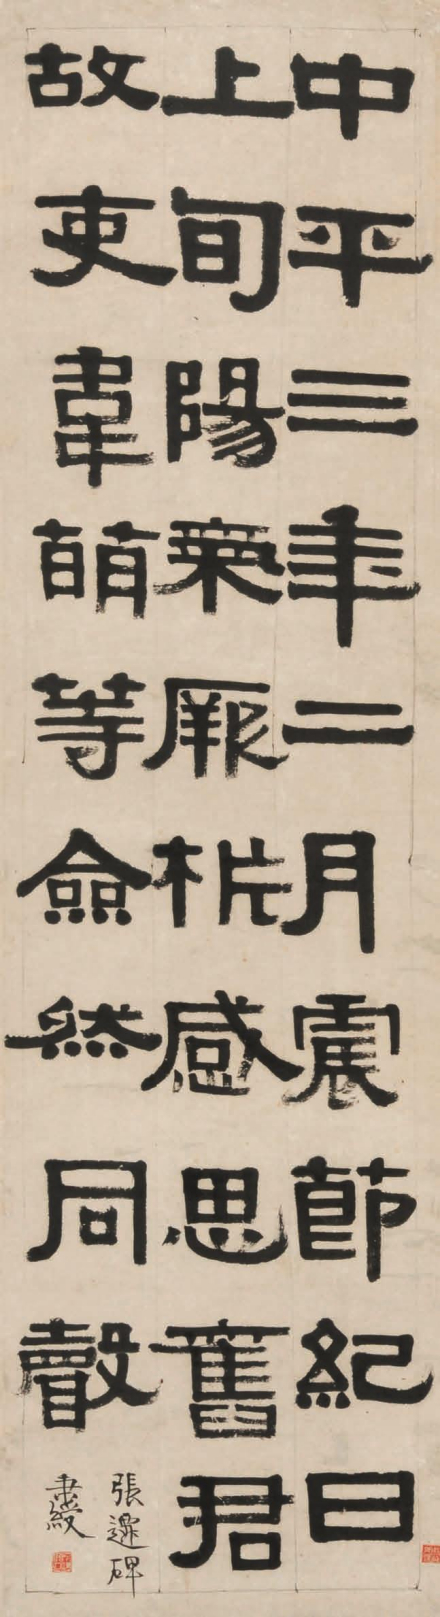 中平三年二月震節紀日
上旬陽氣厥析感思舊君
故吏韋萌等僉然同聲
張遷碑